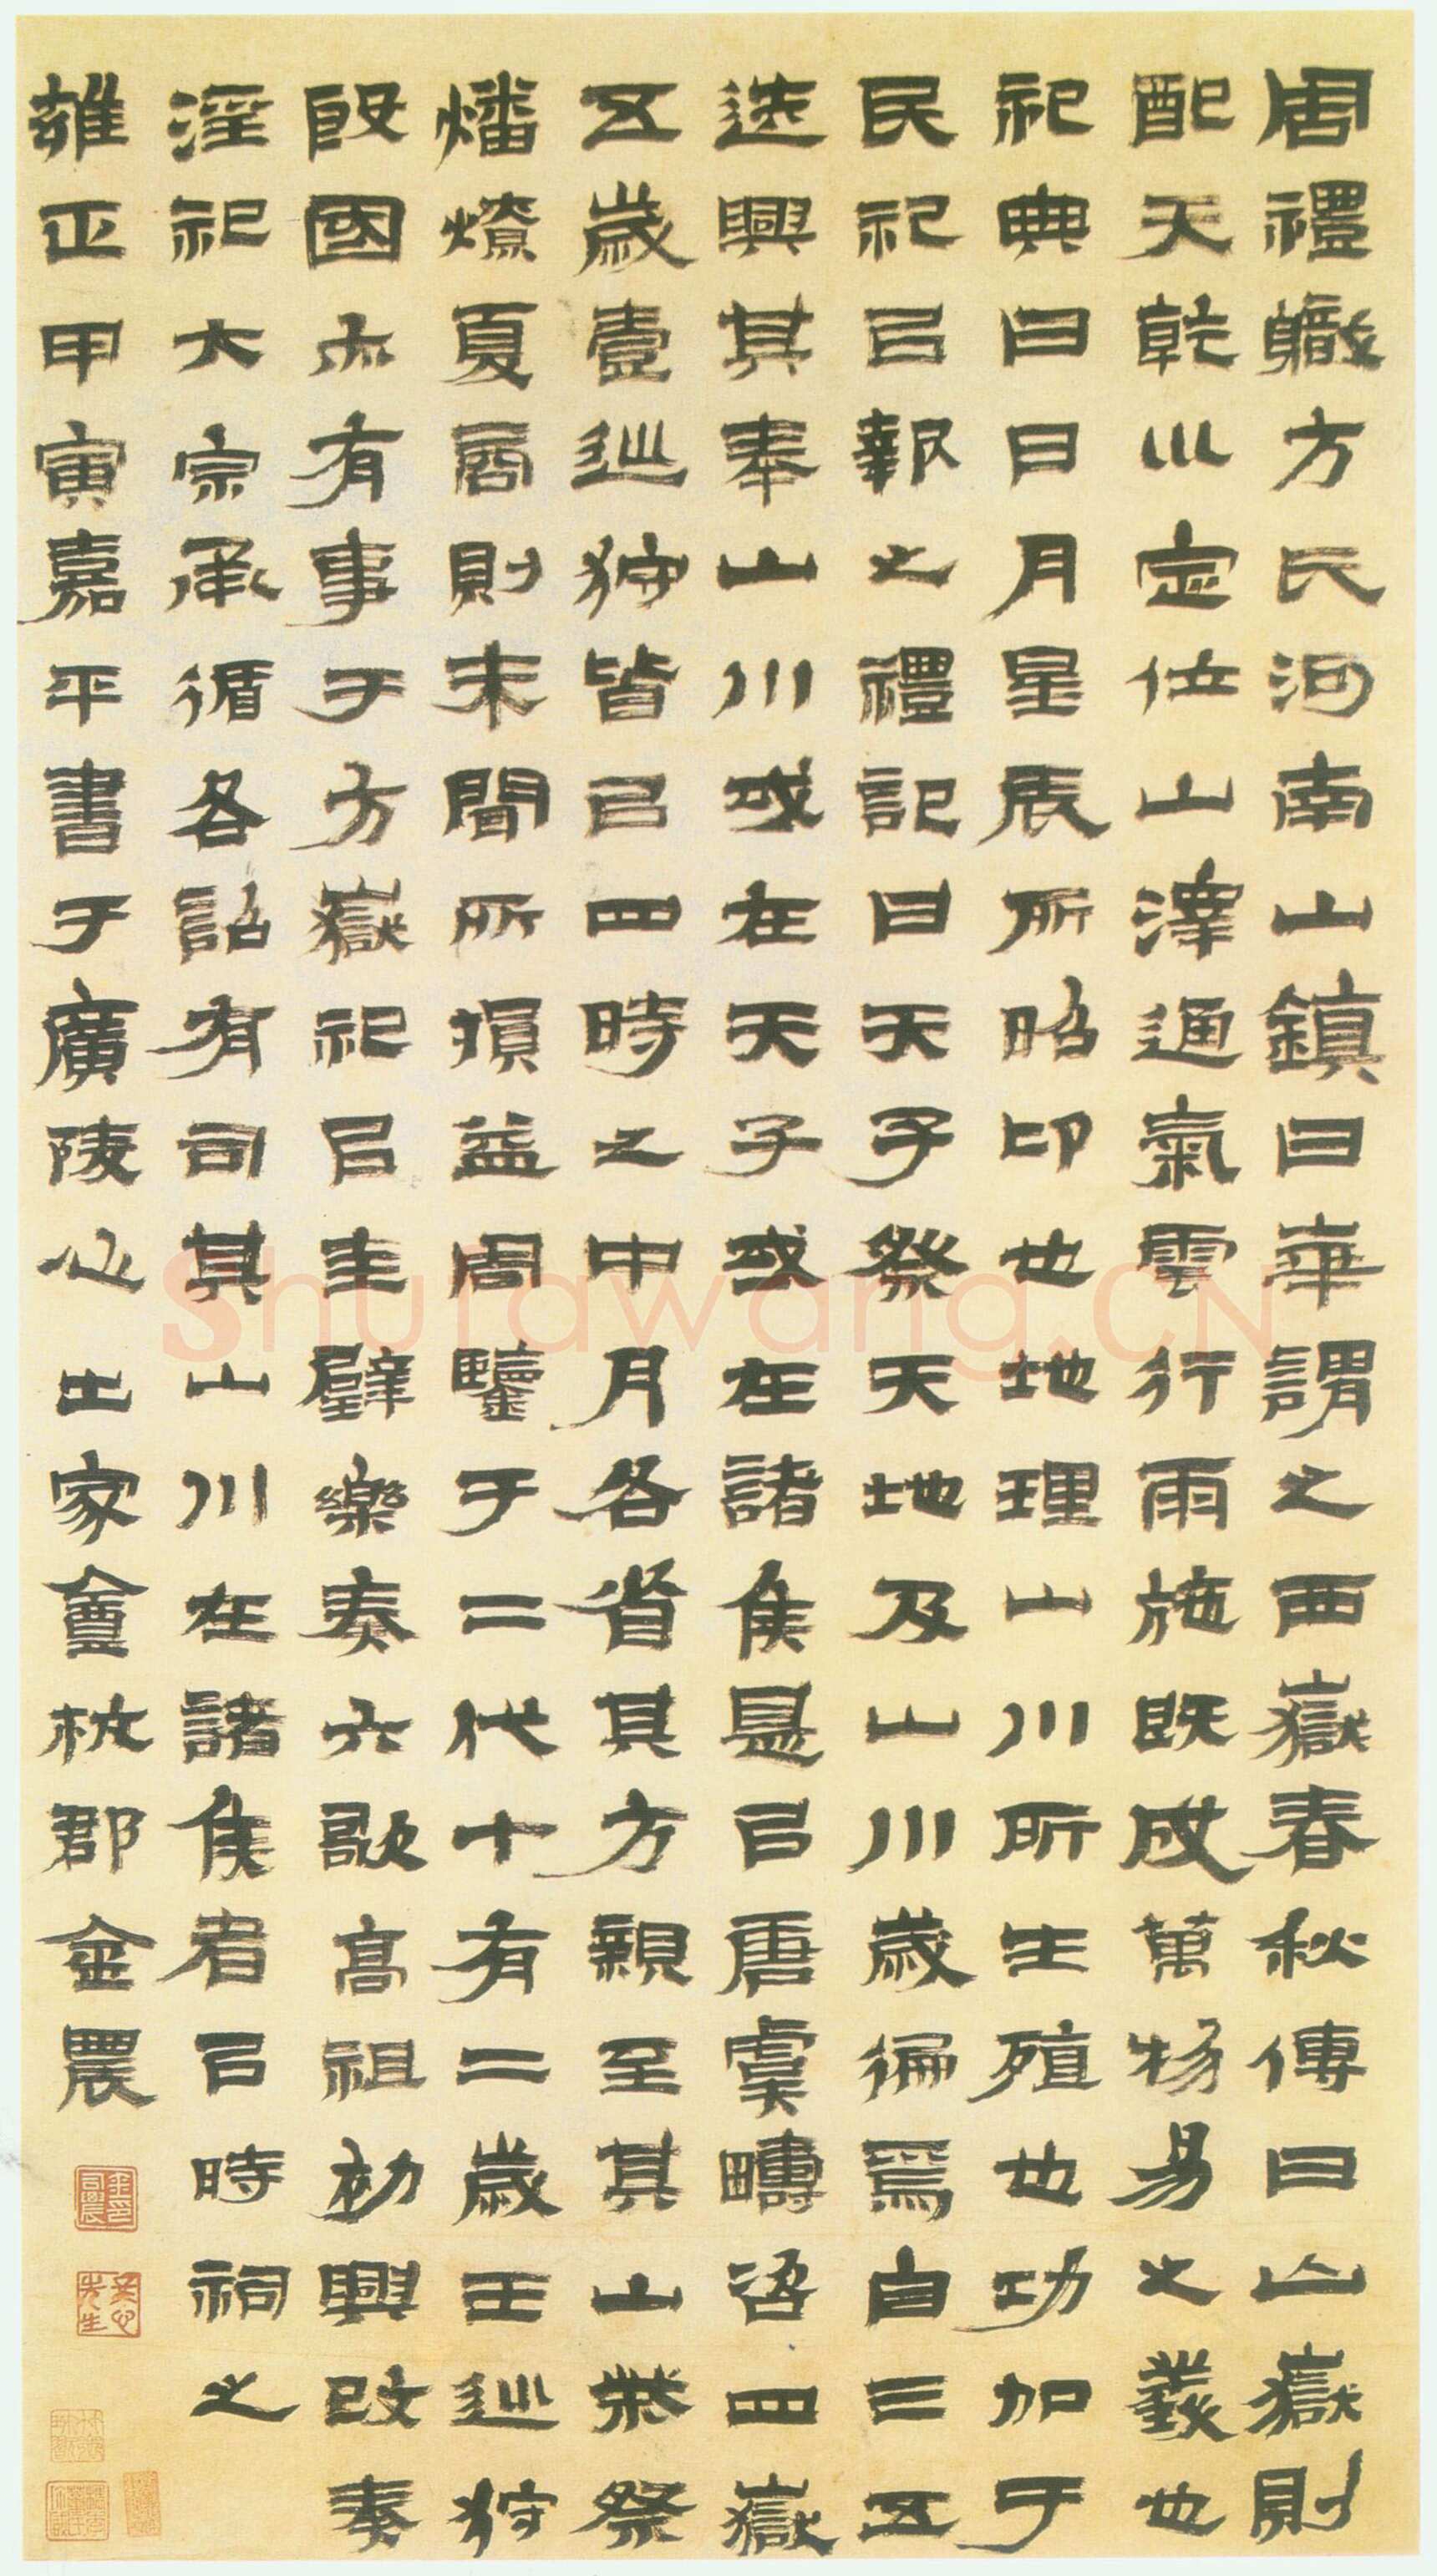 周禮職方氏河南山鎮曰華謂之西嶽春秋傳曰山嶽則
配天乾巛定位山澤通氣雲行雨施既成萬物易之義也
祀典曰日月星辰所昭卬也地理山川所生殖也功加于
民祀㠯報之禮記曰天子祭天地及山川歲徧焉自三五
迭興其奉山川或在天子或在諸侯是㠯唐虞疇咨四嶽
五歲壹巡狩皆㠯四時之中月各省其方親至其山柴祭
燔燎夏商則未聞所損益周鑒于二代十有二歲王巡狩
殷國亦有事于方嶽祀㠯圭璧樂奏六歌高祖初興改秦
淫祀大宗承循各詔有司其山川在諸侯者㠯時祠之
雍正甲寅嘉平書于廣陵心出家盦杭郡金農
Shufawang.CN